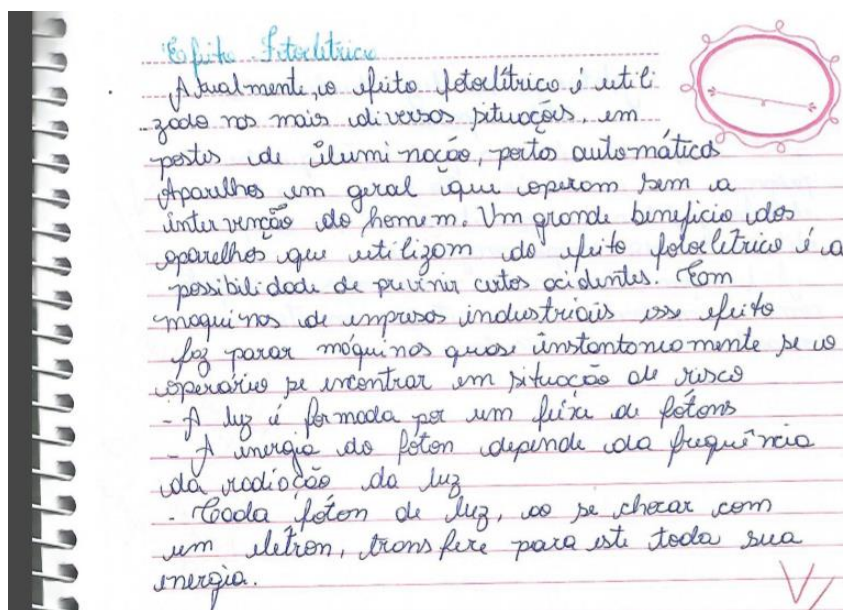 Efeito Fotoelétrico
Atualmente, o efeito fotoelétrico é utili
zado nos mais diversos situações, em
postes de iluminação, portas automáticas
Aparelhos em geral que operam sem a
intervenção do homem. Um grande beneficio dos
aparelhos que utilizam do efeito fotoelétrico é a
possibilidade de previnir certos acidentes. Com
maquinas de empresas industriais esse efeito
faz parar máquinas quase instantaneamente se o
operario se encontrar em situação de risco
- A luz é formada por um feixe de fótons
- A energia do fóton depende da frequência
da radiação da luz
- Cada fóton de luz, ao se chocar com
um elétron, transfere para este toda sua
energia.